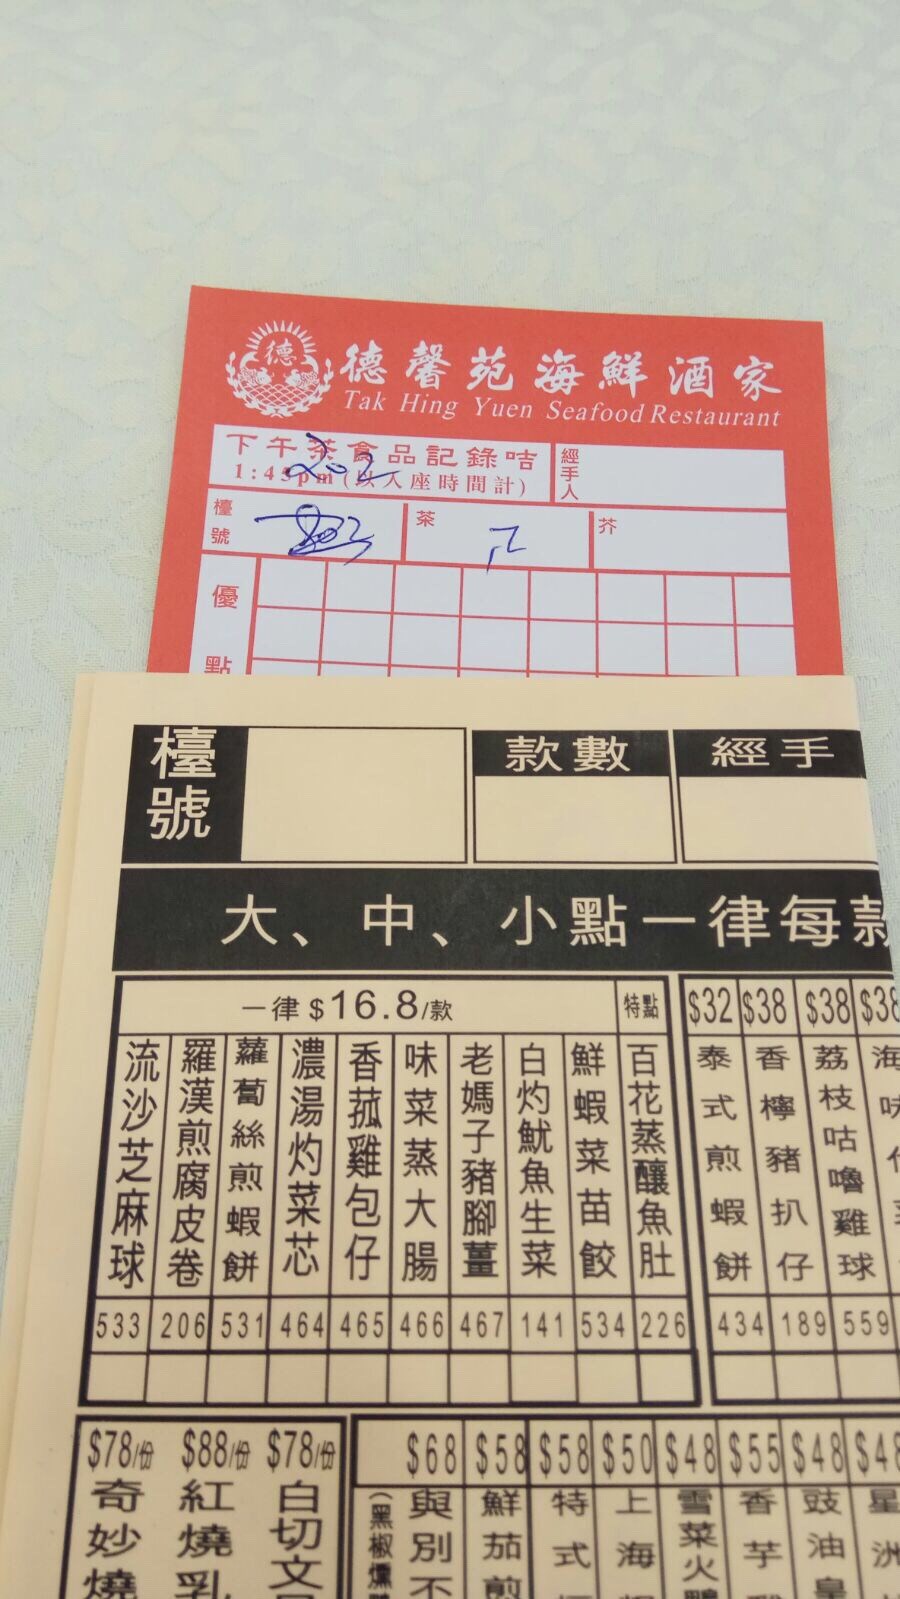 德
德馨苑海鮮酒家
Tak Hing Yuen Seafood Restaurant
下午茶食品記錄咭
1:45pm(以入座時間計)
經手人
202
檯號
茶
芥
優
點
檯號
款數
經手
大、中、小點一律每款
一律$16.8/款
特點
流沙芝麻球
羅漢煎腐皮卷
蘿蔔絲煎蝦餅
濃湯灼菜芯
香菰雞包仔
味菜蒸大腸
老媽子豬腳薑
白灼魷魚生菜
鮮蝦菜苗餃
百花蒸釀魚肚
533 206 531 464 465 466 467 141 534 226
$32 $38 $38 $38
泰式煎蝦餅
香檸豬扒仔
荔枝咕嚕雞球
海味
434 189 559
$78/份 $88/份 $78/份
奇妙燒
紅燒乳
白切文
$68 $58 $58 $50 $48 $55 $48 $48
(黑椒燻
與別不
鮮茄煎
特式
上海
雪菜火鴨
香芋
豉油皇
星洲